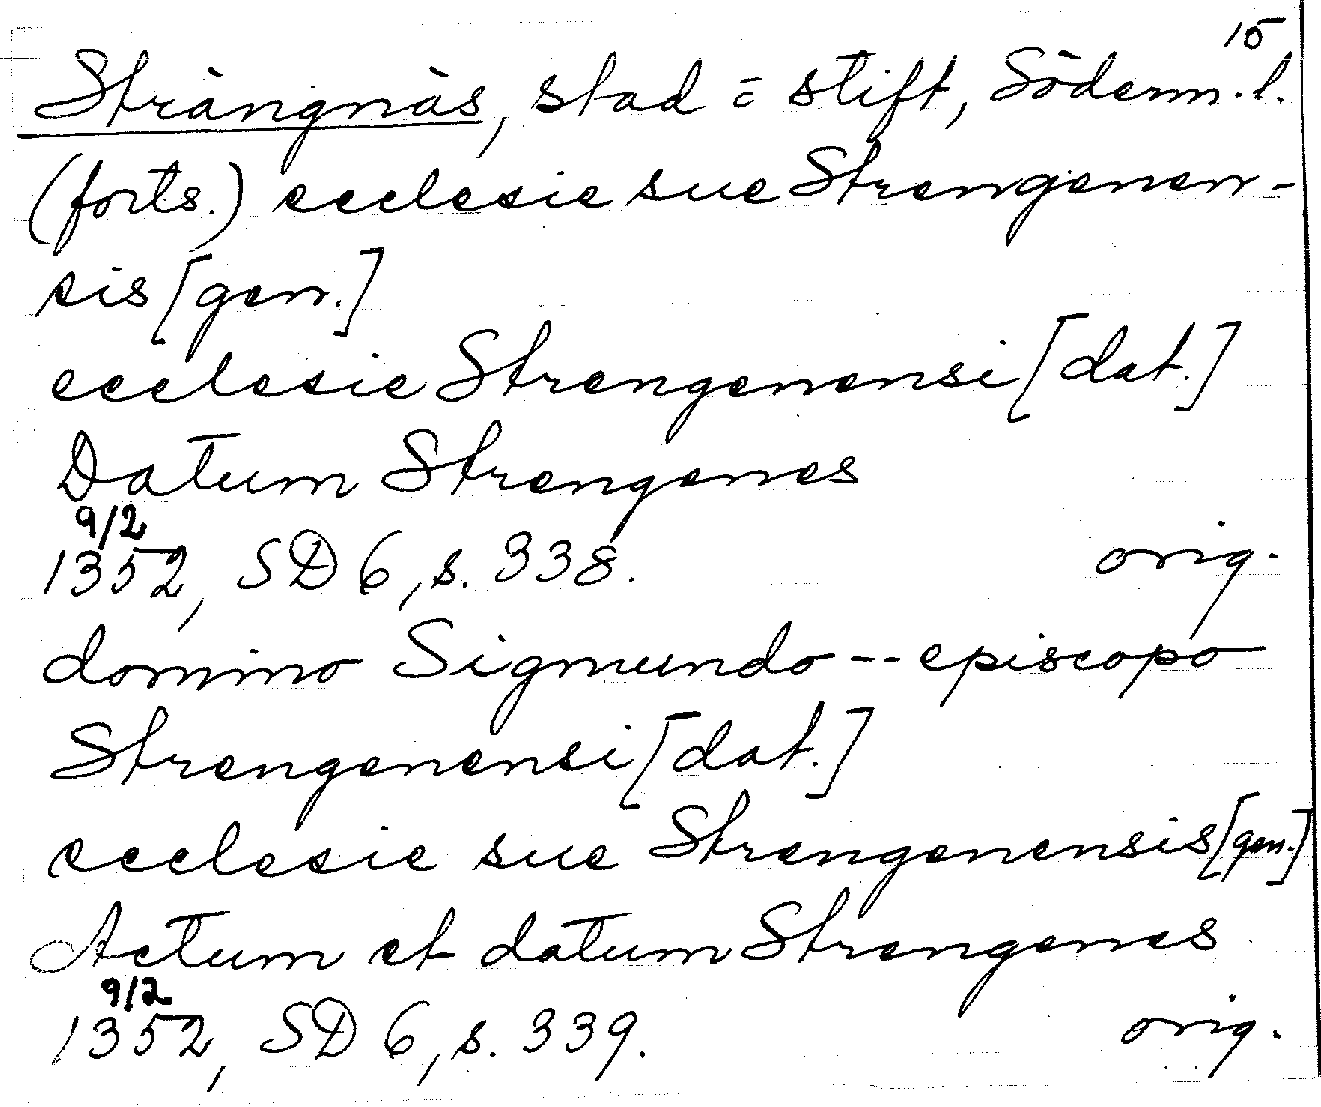 15
Strängnäs, stad = stift, Söderm. l.
(forts.) ecclesie sue Strengenen-
sis [gen.]
ecclesie Strengenensi [dat.]
Datum Strengenes
9/2
1352, SD 6, s. 338. orig.
domino Sigmundo -- episcopo
Strengenensi [dat.]
ecclesie sue Strengenensis [gen.]
Actum et datum Strengenes
9/2
1352, SD 6, s. 339. orig.